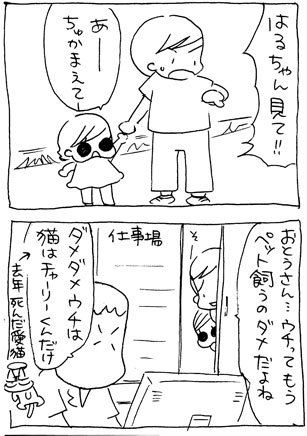 はるちゃん見て!!
あー
ちゅかまえてー
おとうさん…ウチってもう
ペット飼うのダメだよね
仕事場
ダメダメウチは
猫はチャーリーくんだけ
去年死んだ愛猫